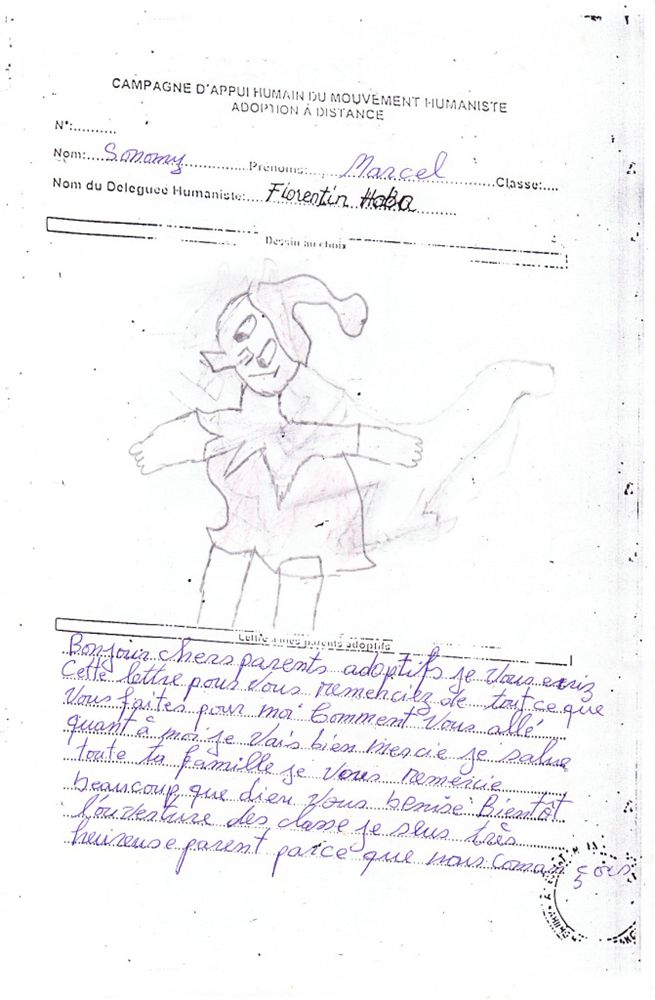 CAMPAGNE D'APPUI HUMAIN DU MOUVEMENT HUMANISTE
ADOPTION À DISTANCE
N°:..........
Nom:....Sonomy..................Prénoms:......Marcel..........Classe:....
Nom du Déléguée Humaniste:....Florentin Haba..........
Dessin au choix
Lettre à mes parents adoptifs
Bonjour chers parents adoptifs je vous
Cette lettre pour vous remercier de tout ce que
Vous faites pour moi Comment vous allé
quant à moi je vais bien mercie je salue
toute ta famille je vous remercie
beaucoup que dieu vous benise Bientôt
l'ouverture des classe je suis très
heureuse parent parce que nous